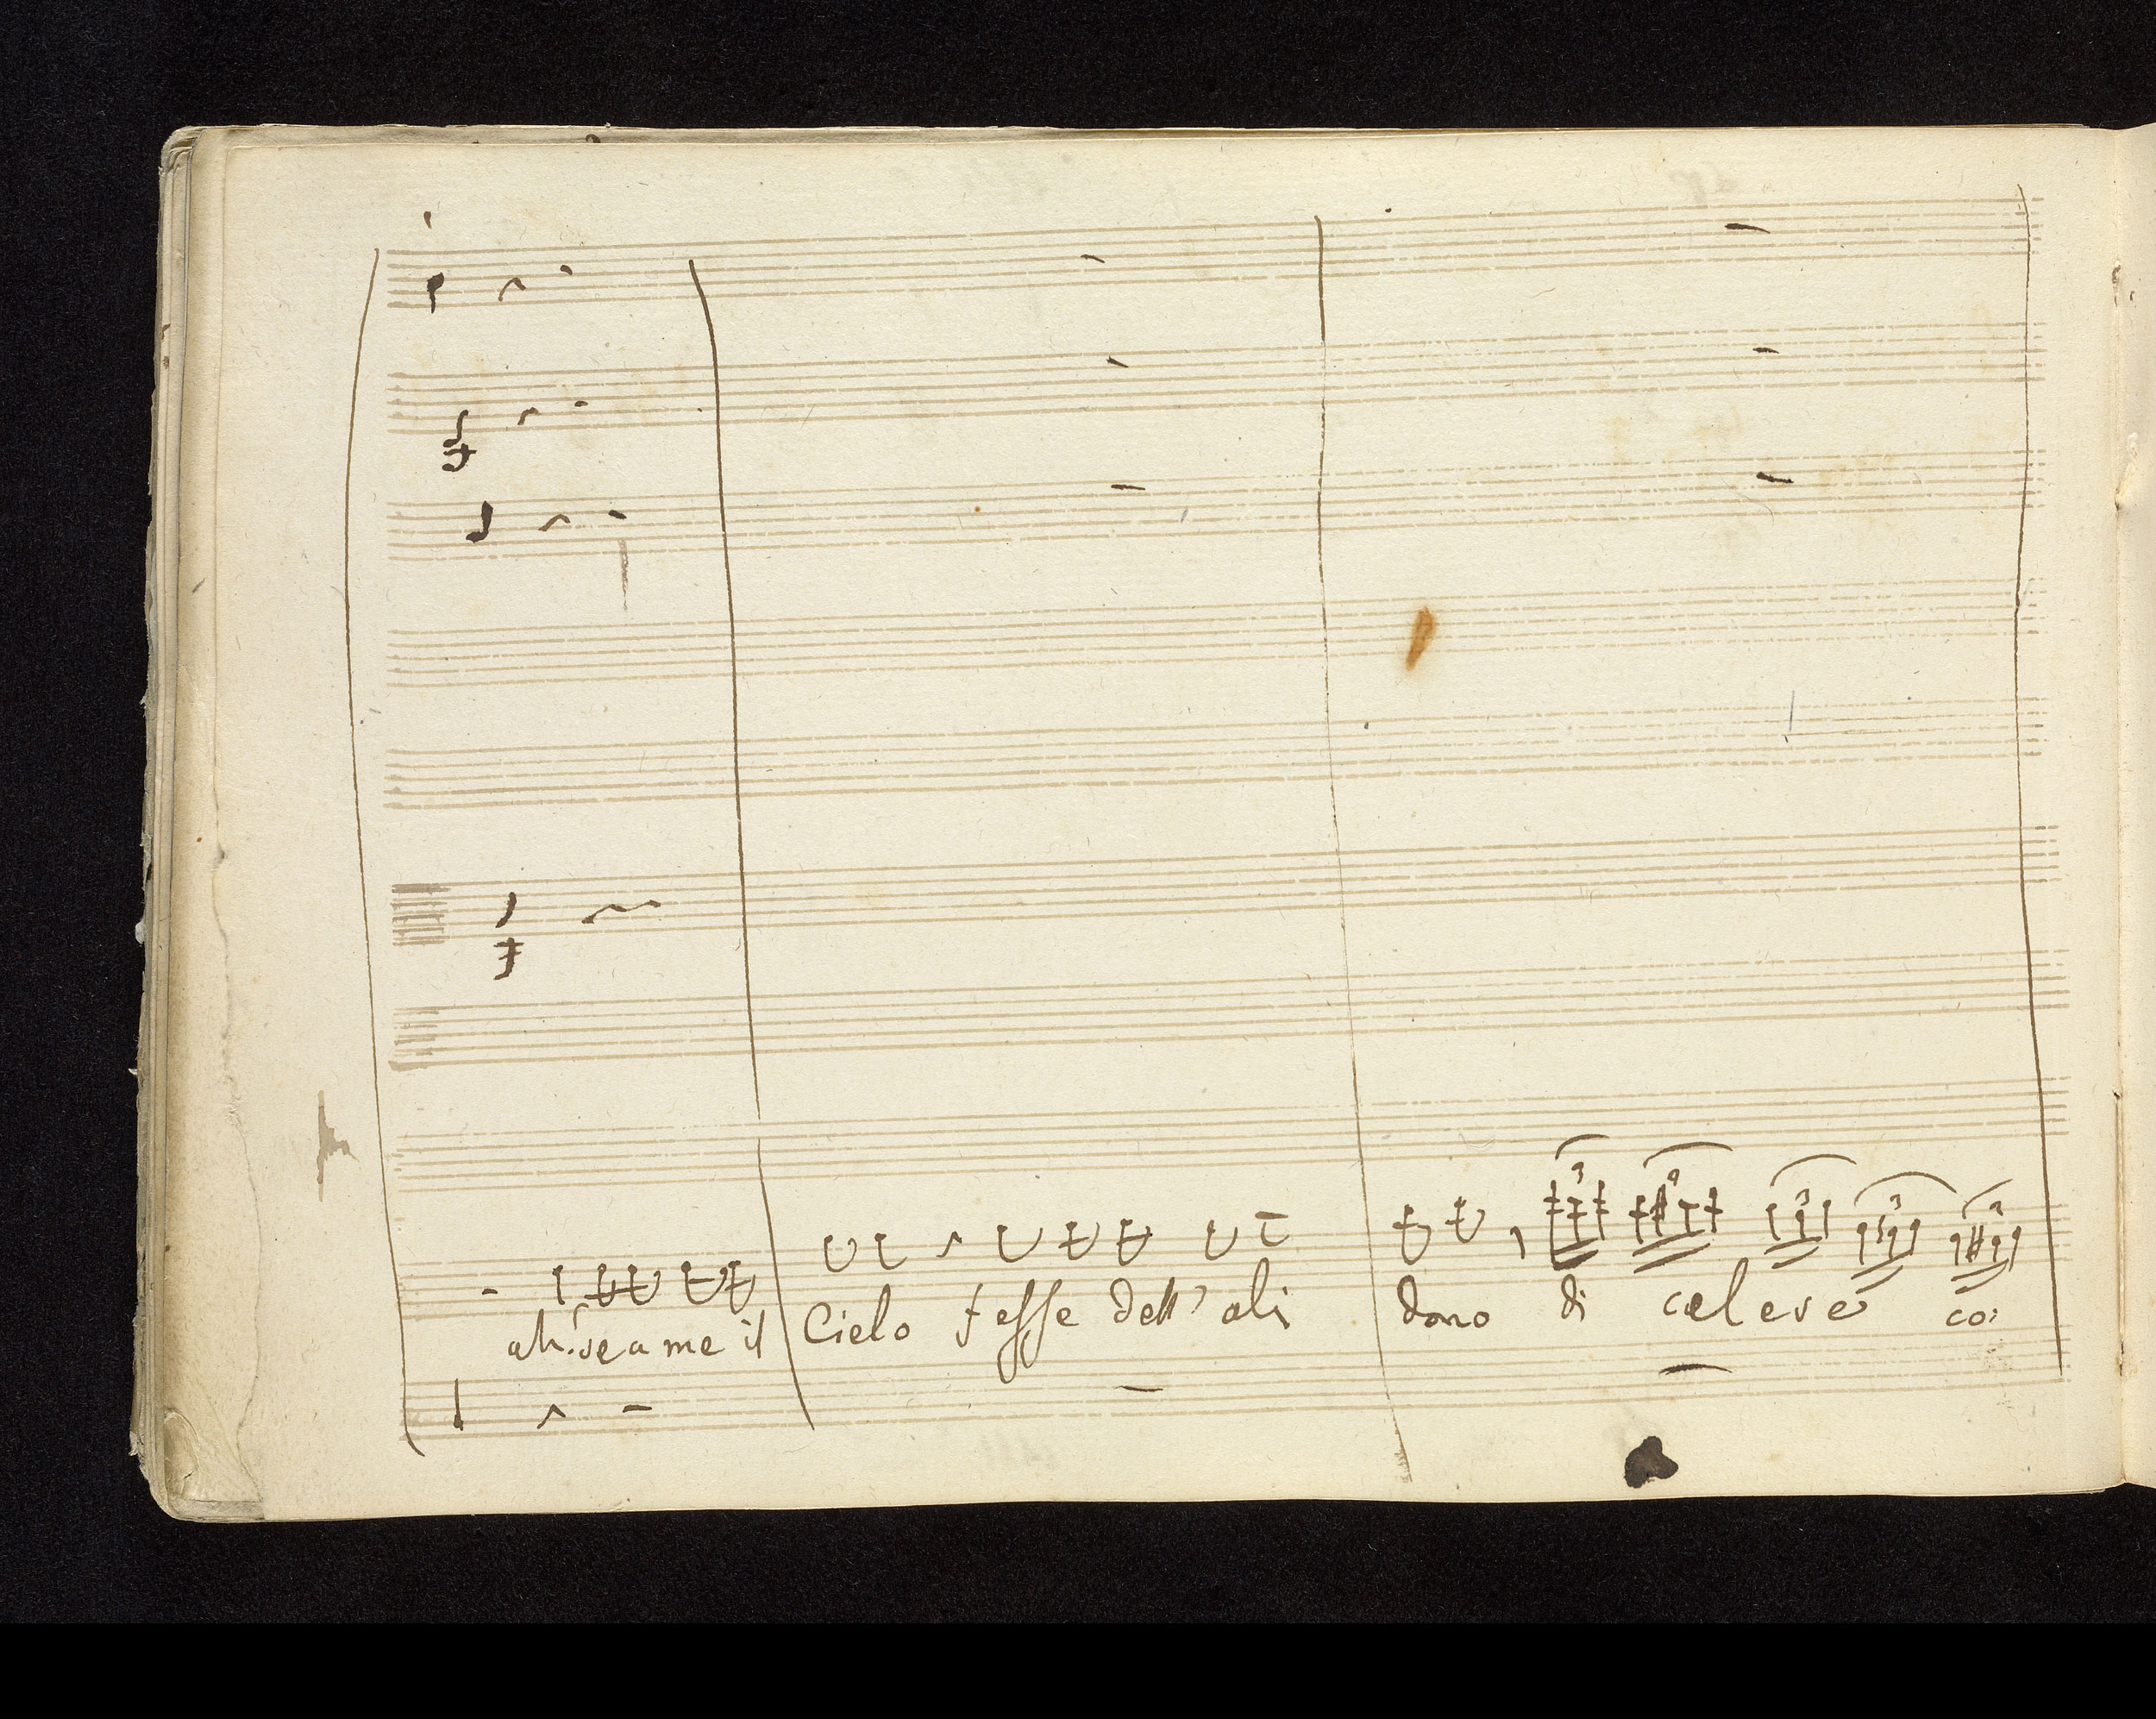 ah! se a me il Cielo fesse dell' ali dono di celere co: